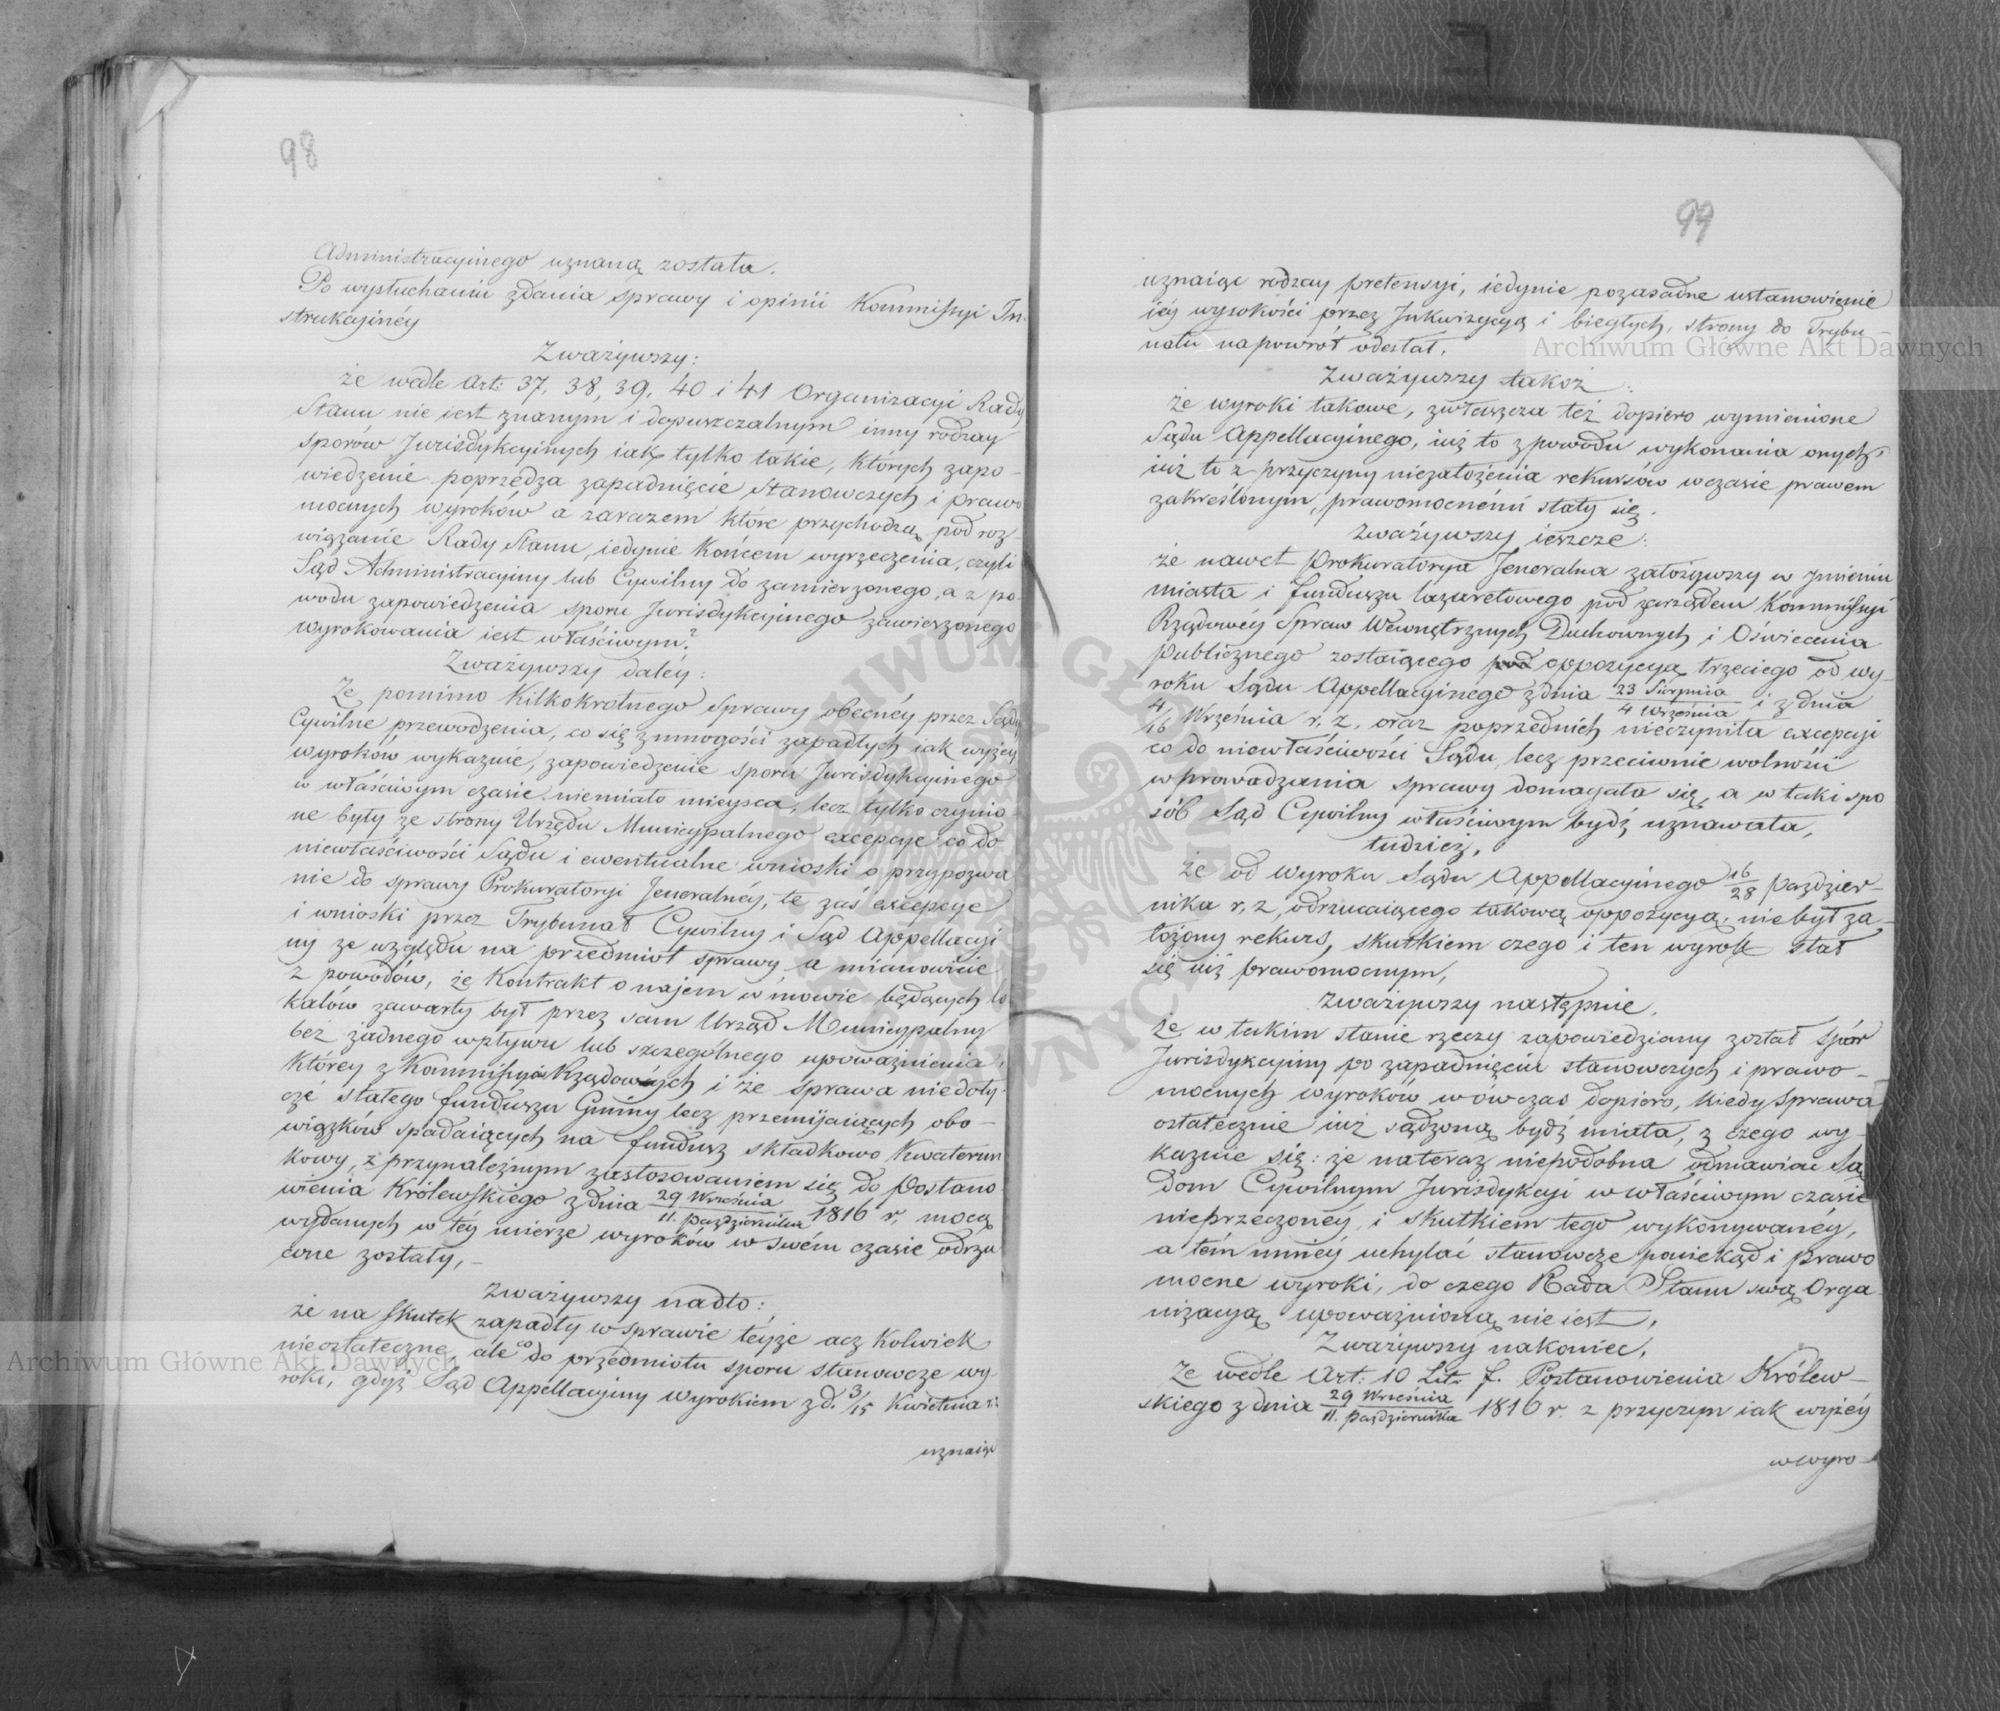 98
Administracyinego uznaną została.
Po wysłuchaniu zdania sprawy i opinii Kommissyi In-
strukcyinéy
Zważywszy:
że wedle Art: 37, 38, 39, 40 i 41 Organizacyi Rady
Stanu nie iest znanym i dopuszczalnym inny rodzay
sporów Jurisdykcyinych iak tylko takie, których zapo-
wiedzenie poprzedza zapadnięcie stanowczych i prawo
mocnych wyroków a zarazem które przychodzą pod roz-
wiązanie Rady Stanu, iedynie końcem wyrzeczenia, czyli
Sąd Administracyiny lub Cywilny do zamierzonego, a z po
wodu zapowiedzenia sporu Jurisdykcyinego zawieszonego
wyrokowania iest właściwym?
Zważywszy daléy:
Że pomimo kilkokrotnego sprawy obecnéy przez Sądy
Cywilne przewodzenia, co się z mnogości zapadłych iak wyżey
wyroków wykazuie, zapowiedzenie sporu Jurisdykcyinego
w właściwym czasie niemiało mieysca, lecz tylko czynio
ne były ze strony Urzędu Municypalnego excepcye co do
niewłaściwości Sądu i ewentualne wnioski o przypozwa
nie do sprawy Prokuratoryi Jeneralnéy, te zaś excepcye
i wnioski przez Trybunał Cywilny i Sąd Appellacyi
ny ze względu na przedmiot sprawy, a mianowicie
z powodów, że Kontrakt o najem w mowie będących lo-
kalów zawarty był przez sam Urząd Municypalny
bez żadnego wpływu lub szczególnego upoważnienia,
którey z Kommissyi Rządowych i że sprawa niedoty-
czé stałego funduszu Gminy lecz przemijaiących obo-
wiązków spadaiących na fundusz składkowo kwaterun
kowy, z przynależnym zastosowaniem się do Postano
wienia Królewskiego z dnia 29 Września / 11. Października 1816 r, mocą
wydanych w téy mierze wyroków w swém czasie odrzu
cone zostały,
Zważywszy nadto:
że na skutek zapadły w sprawie teyże acz kolwiek
nieostateczne, ale co do przedmiotu sporu stanowcze wy
roki, gdyż Sąd Appellacyiny Wyrokiem z d. 3/15 Kwietnia r:z
uznaiąc
99
uznaiąc rodzay pretensyi, iedynie pozasadne ustanowienie
iéy wysokości przez Inkwizycyą i biegłych, strony do Trybu-
nału napowrót odesłał.
Zważywszy takoż:
że wyroki takowe, zwłaszcza też dopiero wymienione
Sądu Appellacyinego, iuż to z powodu wykonania onych,
iuż to z przyczyny niezałożenia rekursów w czasie prawem
zakreślonym, prawomocnémi stały się.
Zważywszy ieszcze:
że nawet Prokuratorya Jeneralna założywszy w imieniu
miasta i funduszu lazaretowego pod zarządem Kommissyi
Rządowéy Spraw Wewnętrznych Duchownych i Oświecenia
Publicznego zostaiącego oppozycyą trzeciego od wy-
roku Sądu Appellacyinego z dnia 23 Sierpnia / 4 Września i z dnia
4/16 Września r. z. oraz poprzednich nieczyniła excepcyi
co do niewłaściwości Sądu, lecz przeciwnie wolności
wprowadzania sprawy domagała się, a w taki spo
sób Sąd Cywilny właściwym bydź uznawała,
tudzież,
że od wyroku Sądu Appellacyinego 16/28 Paździer-
nika r. z, odrzucaiącego takową oppozycyą, nie był za-
łożony rekurs, skutkiem czego i ten wyrok stał
się iuż prawomocnym,
Zważywszy następnie,
że w takim stanie rzeczy zapowiedziany został spór
Jurisdykcyiny po zapadnięciu stanowczych i prawo-
mocnych wyroków wówczas dopiero, kiedy sprawa
ostatecznie iuż sądzoną bydź miała, z czego wy-
kazuie się: że nateraz niepodobna odmawiać Są
dom Cywilnym Jurisdykcyi w właściwym czasie
nieprzeczonéy, i skutkiem tego wykonywanéy,
a tém mniéy uchylać stanowcze poniekąd i prawo
mocne wyroki, do czego Rada Stanu swą Orga-
nizacyą upoważnioną nie iest,
Zważywszy nakoniec,
Że wedle Art: 10 Lit: f. Postanowienia Królew-
skiego z dnia 29 Września / 11. Października 1816 r. z przyczyn iak wyżéy
w wyro-
Archiwum Główne Akt Dawnych
Archiwum Główne Akt Dawnych